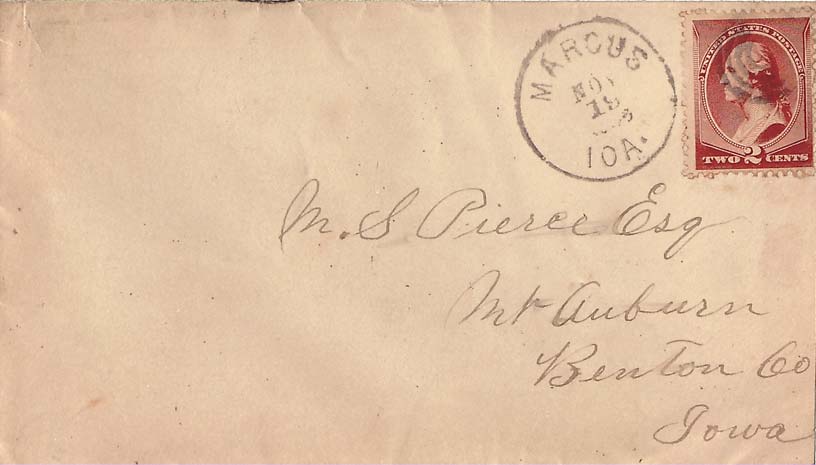 MARCUS
NOV
19
IOA.
UNITED STATES POSTAGE
TWO 2 CENTS
M. S Pierce Esq
Mt Auburn
Benton Co
Iowa